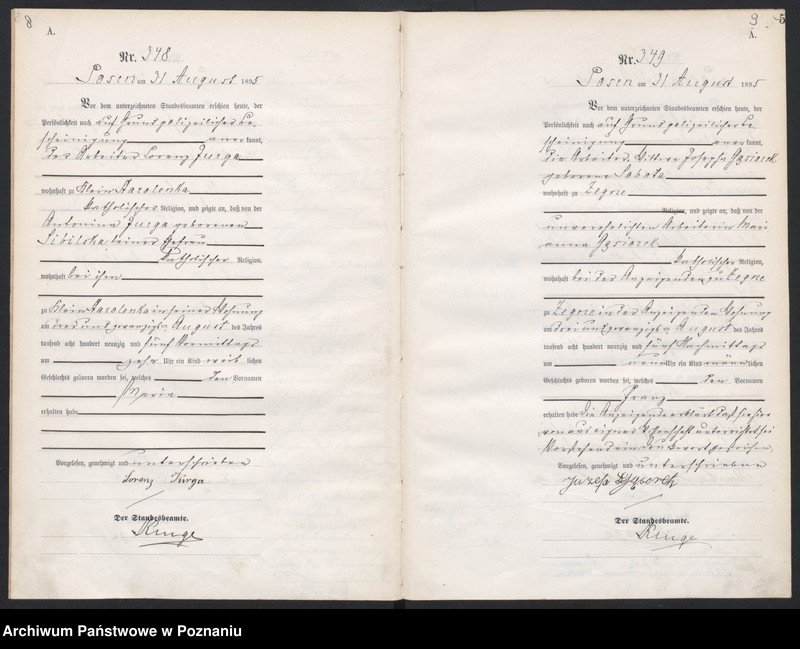 8
A.
Nr. 348
Posen am 31 August 1895
Vor dem unterzeichneten Standesbeamten erschien heute, der
Persönlichkeit nach auf Grund polizeilicher Be-
scheinigung anerkannt,
der Arbeiter Lorenz Jurga
wohnhaft zu Klein Starolenka
katholischer Religion, und zeigte an, daß von der
Antonina Jurga geborenen
seiner Ehefrau
katholischer Religion,
wohnhaft bei ihm
zu Klein Starolenka in seiner Wohnung
am drei und zwanzigsten August des Jahres
tausend acht hundert neunzig und fünf Vormittags
um zehn Uhr ein Kind weiblichen
Geschlechts geboren worden sei, welches den Vornamen
Maria
erhalten habe
Vorgelesen, genehmigt und unterschrieben
Lorenz Jurga
Der Standesbeamte.
9
5
A.
Nr. 349
Posen am 31 August 1895
Vor dem unterzeichneten Standesbeamten erschien heute, der
Persönlichkeit nach auf Grund polizeilicher Be
scheinigung anerkannt,
die Arbeiter-Wittwe Josepha Gąsiorek
geborene Sobota
wohnhaft zu Zegrze
Religion, und zeigte an, daß von der
unverehelichten Arbeiterin Mari
anna Gąsiorek
katholischer Religion,
wohnhaft bei der Anzeigenden zu Zegrze
zu Zegrze in der Anzeigenden Wohnung
am drei und zwanzigsten August des Jahres
tausend acht hundert neunzig und fünf Nachmittags
um neun Uhr ein Kind männlichen
Geschlechts geboren worden sei, welches den Vornamen
Franz
erhalten habe die Anzeigende erklärt daß sie hier
von aus eigner Wissenschaft unterrichtet sei
Vorstehend ein Druckwort gestrichen.
Vorgelesen, genehmigt und unterschrieben
Der Standesbeamte.
Archiwum Państwowe w Poznaniu